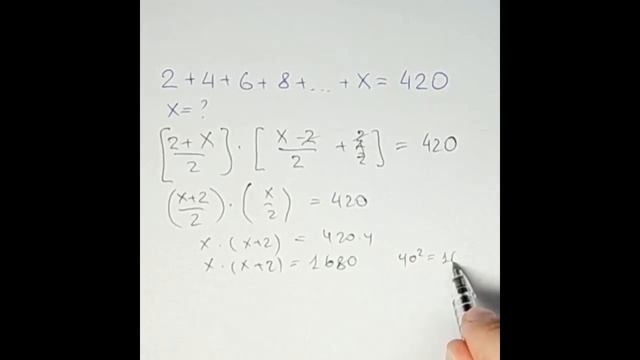 2 + 4 + 6 + 8 + ... + x = 420
x = ?
[(2 + x)/2] · [(x - 2)/2 + 2/2] = 420
((x+2)/2) · (x/2) = 420
x · (x+2) = 420.4
x · (x+2) = 1680
40² = 16